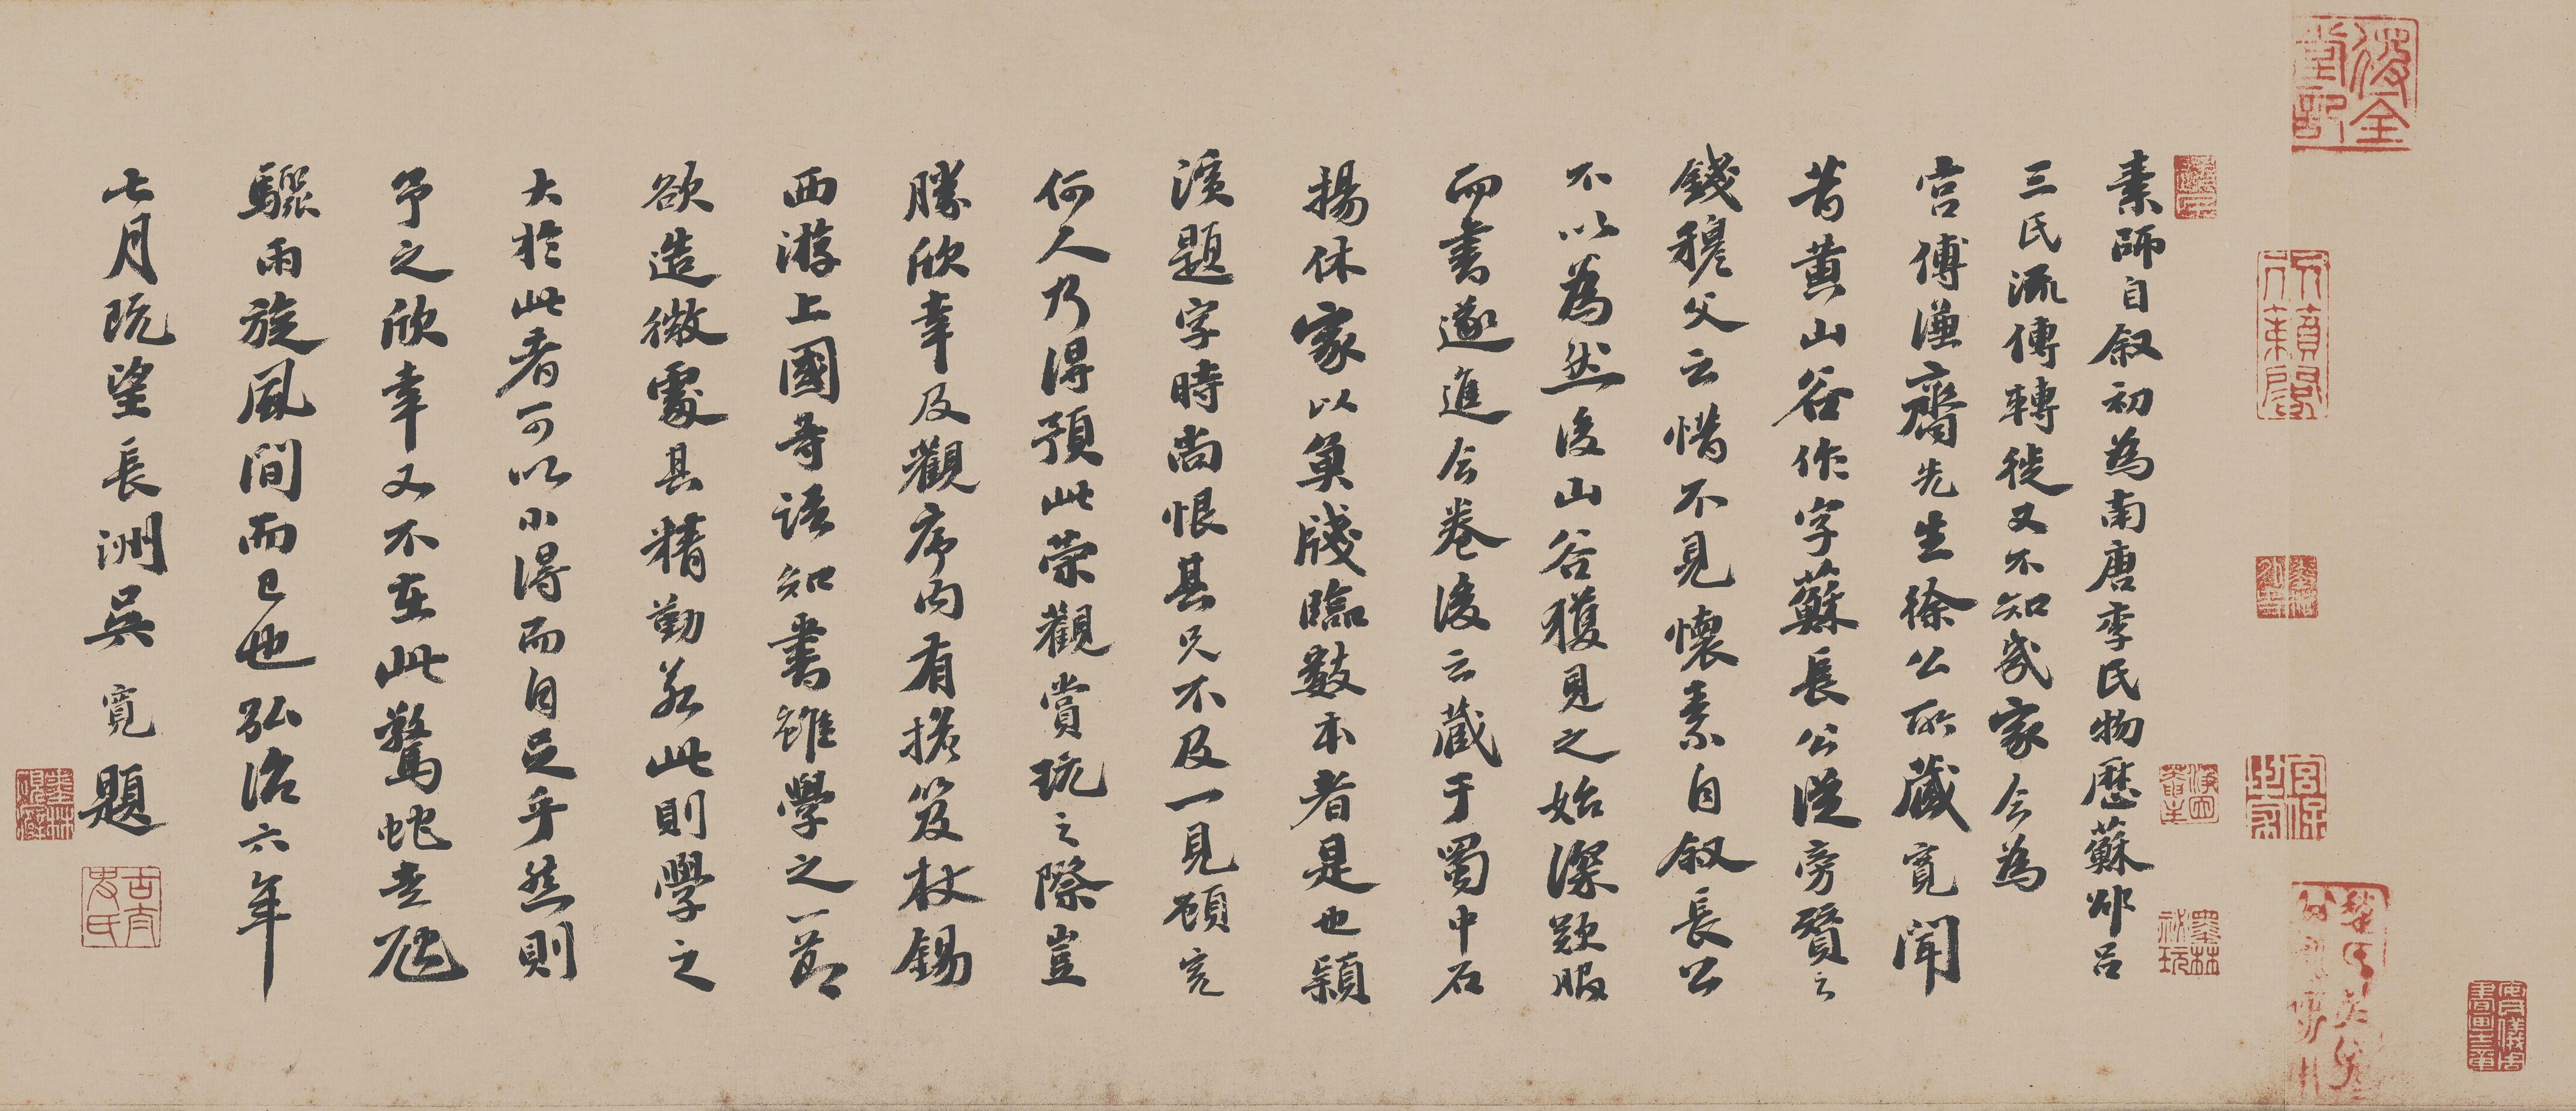 素師自叙初為南唐李氏物歷蘇邵呂
三氏流傳轉徙又不知幾家今為
宮傅謙齋先生徐公所藏寬聞
昔黃山谷作字蘇長公從旁贊之
錢穆父云惜不見懷素自叙長公
不以為然後山谷獲見之始深歎服
而書遂進今卷後云藏于蜀中石
揚休家以魚牋臨數本者是也潁
濱題字時尚恨其兄不及一見顧寬
何人乃得預此榮觀賞玩之際豈
勝欣幸及觀序內有擔笈杖錫
西游上國等語知書雖學之一節
欲造微處其精勤若此則學之
大於此者可以小得而自足乎然則
予之欣幸又不在此驚蛇走虺
驟雨旋風間而已也弘治六年
七月既望長洲吳寬題
安氏儀周書畫之章
宮保世家
墨林秘玩
古太史氏